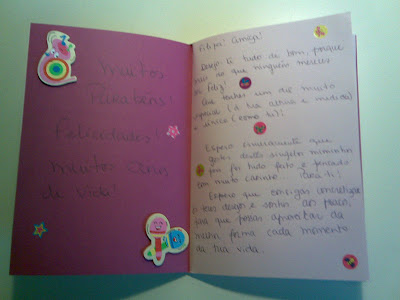 Muitos
Parabéns!
Felicidades!
Muitos anos
de vida!
Filipa! Amiga!
Desejo-te tudo de bom, porque
mais do que ninguém mereces
ser feliz!
Que tenhas um dia muito
especial (à tua altura e medida)
e único (como tu)!
Espero sinceramente que
gostes deste singelo miminho
pois foi tudo feito e pensado
com muito carinho... para ti!
Espero que consigas concretizar
os teus desejos e sonhos aos poucos,
para que possas aproveitar da
melhor forma cada momento
da tua vida.